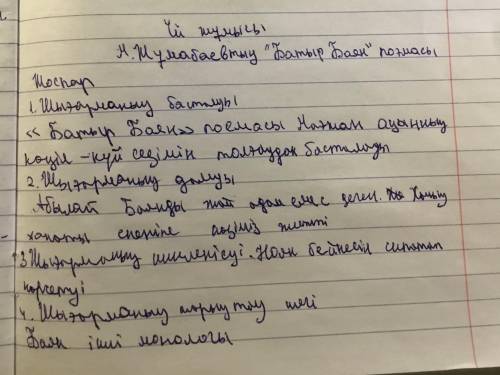 Үй жұмысы
М. Жумабаевтың "Батыр Баян" поэмасы
Жоспар
1. Шығарманың басталуы
« Батыр Баян» поемасы Мағжан ақынның
көңіл - күй сезімін толғаудан басталады
2. Шығарманың дамуы
Абылай Баянды жай адам емес деген.
3 Шығарманың шиеленісуі. Ноян бейнесін сипаттап
көрсетуі
4. Шығарманың шарықтау шегі
Баян ішкі монологы